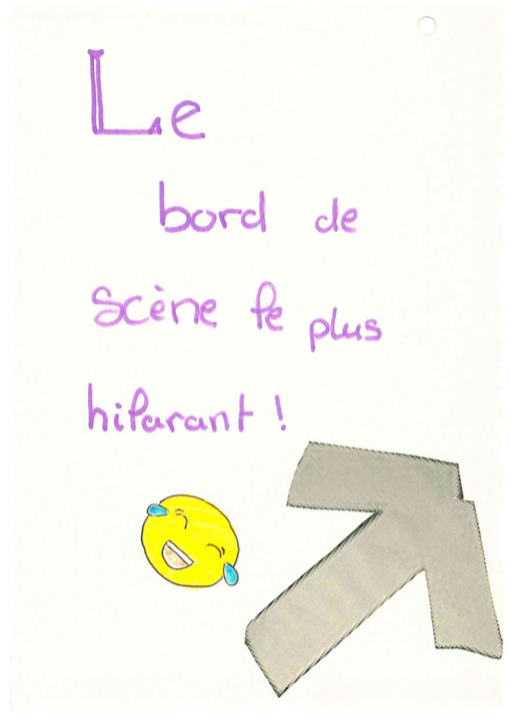 Le
bord de
scène le plus
hilarant !